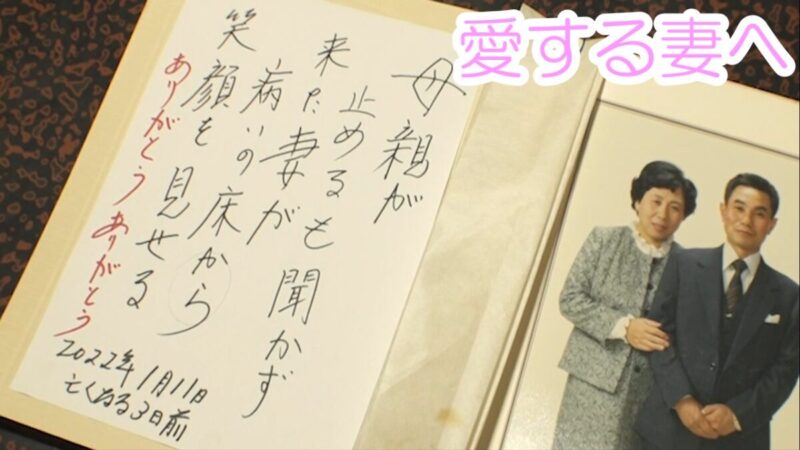 愛する妻へ
母親が
止めるも聞かず
来た妻が
病いの床から
笑顔を見せる
ありがとう ありがとう
2022年1月11日
亡くなる3日前